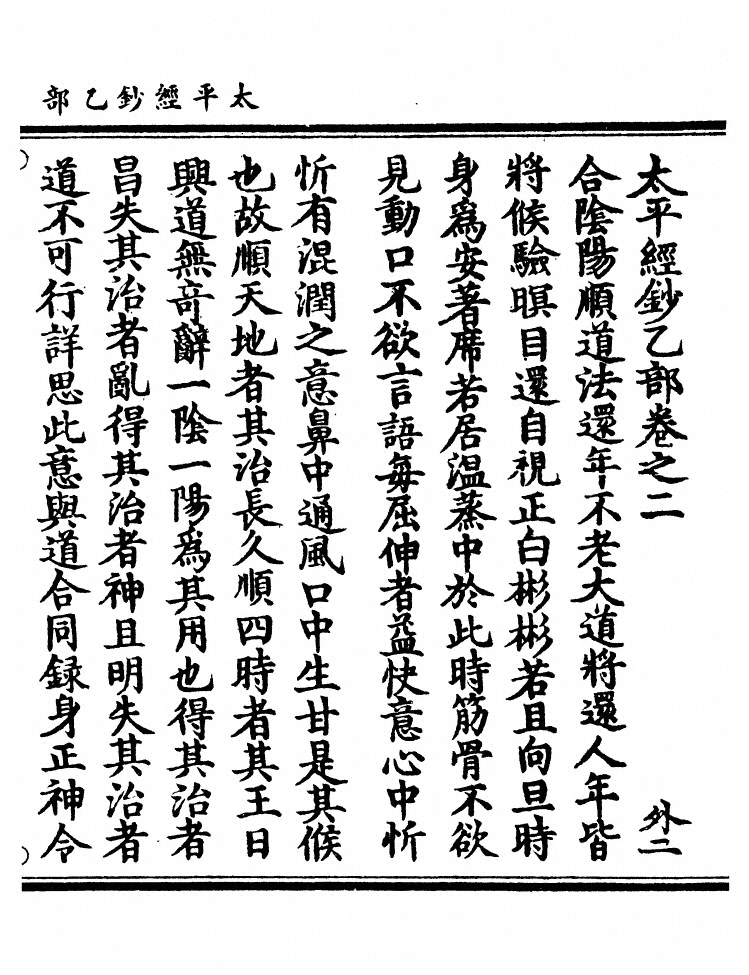 太平經鈔乙部
太平經鈔乙部卷之二　外二
合陰陽順道法還年不老大道將還人年皆
將候驗瞑目還自視正白彬彬若且向旦時
身爲安著席若居溫蒸中於此時筋骨不欲
見動口不欲言語每屈伸者益快意心中忻
忻有混潤之意鼻中通風口中生甘是其候
也故順天地者其治長久順四時者其王日
興道無奇辭一陰一陽爲其用也得其治者
昌失其治者亂得其治者神且明失其治者
道不可行詳思此意與道合同録身正神令